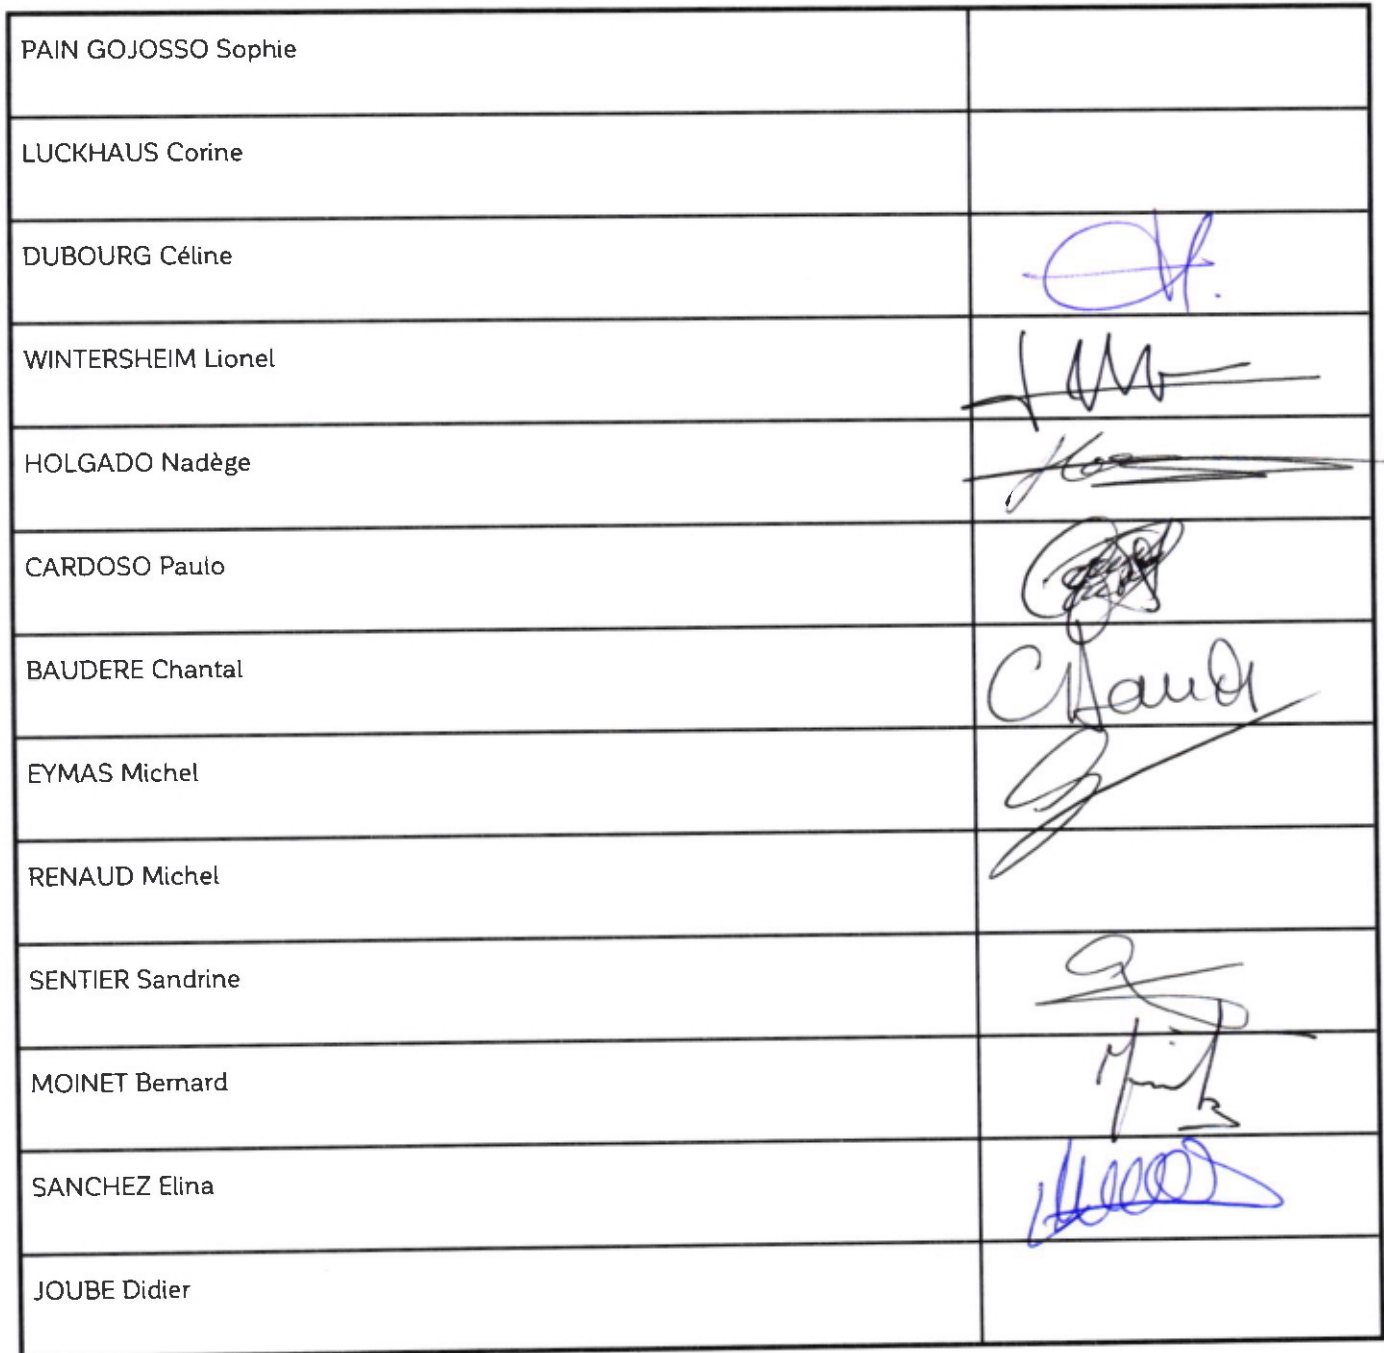 PAIN GOJOSSO Sophie
LUCKHAUS Corine
DUBOURG Céline
WINTERSHEIM Lionel
HOLGADO Nadège
CARDOSO Paulo
BAUDERE Chantal
EYMAS Michel
RENAUD Michel
SENTIER Sandrine
MOINET Bernard
SANCHEZ Elina
JOUBE Didier